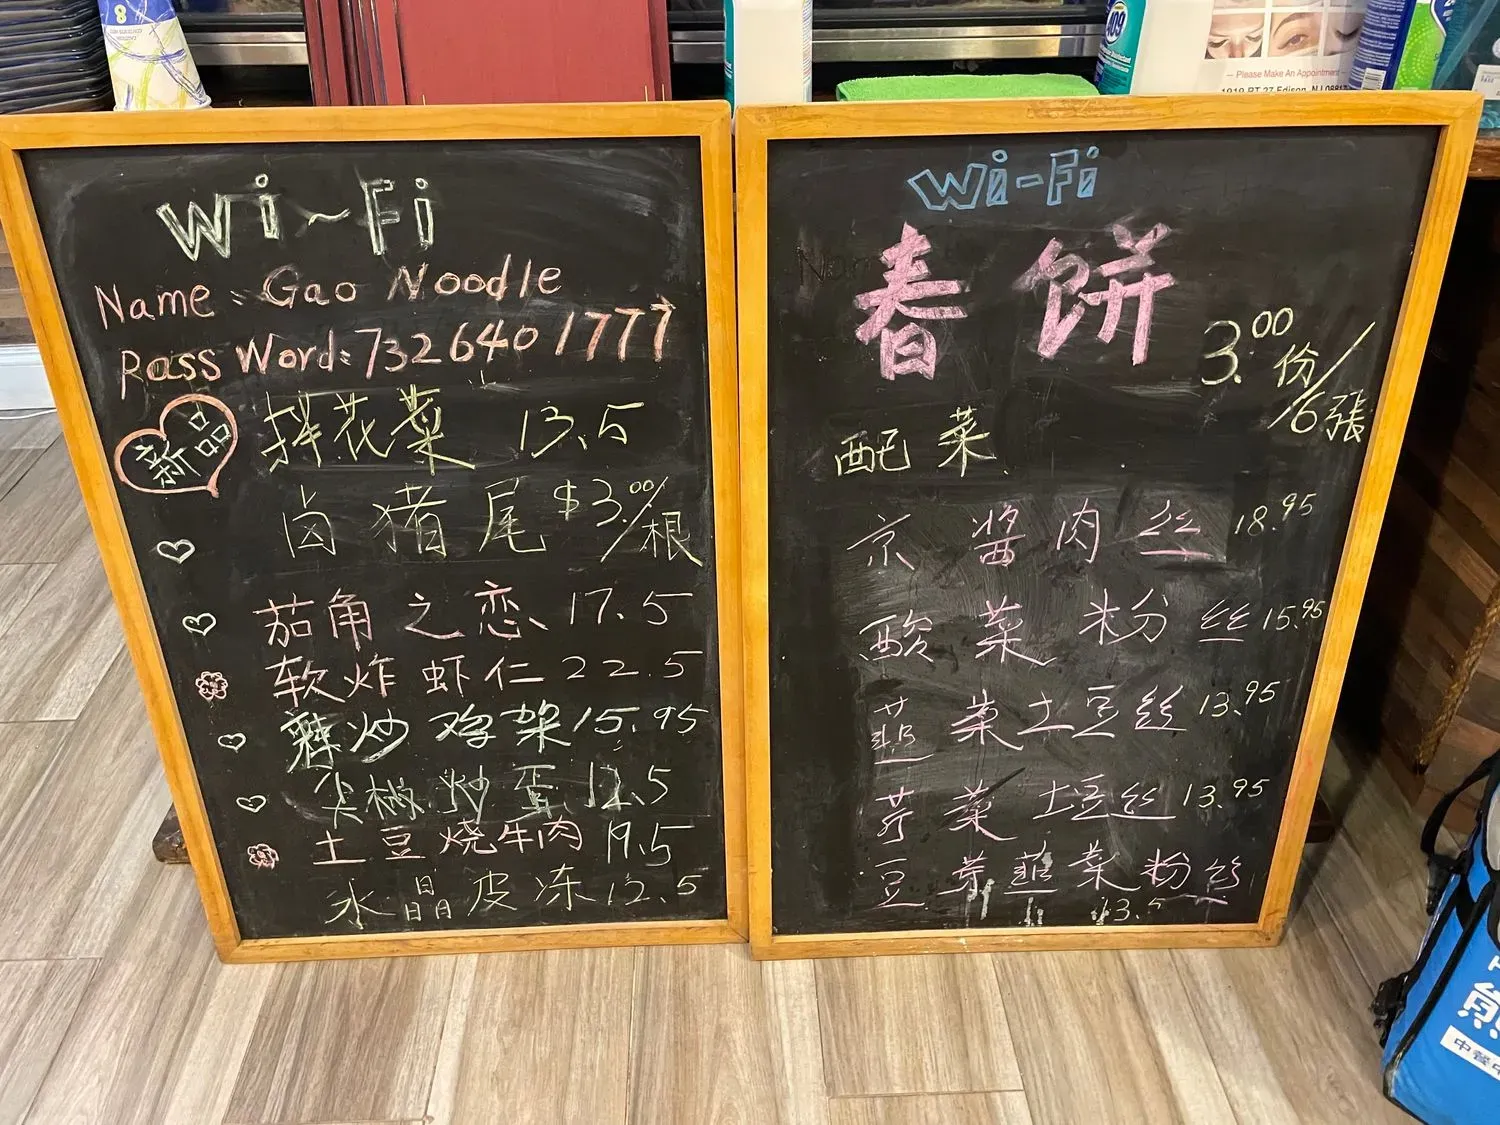 8
409
— Please Make An Appointment —
1819 RT 27 Edison, NJ 08817
Wi~Fi
Name: Gao Noodle
Pass Word: 7326401777
新品
拌花菜 13.5
卤猪尾 $3.00/根
茄角之恋 17.5
软炸虾仁 22.5
辣炒鸡架 15.95
尖椒炒蛋 12.5
土豆烧牛肉 19.5
水晶皮冻 12.5
Wi-Fi
春饼
3.00份/6張
配菜
京酱肉丝 18.95
酸菜粉丝 15.95
韮菜土豆丝 13.95
芹菜土豆丝 13.95
豆芽韮菜粉丝
13.5
熊